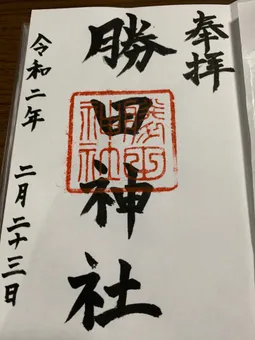 奉拝
勝田神社
勝田神社
令和二年 二月二十三日